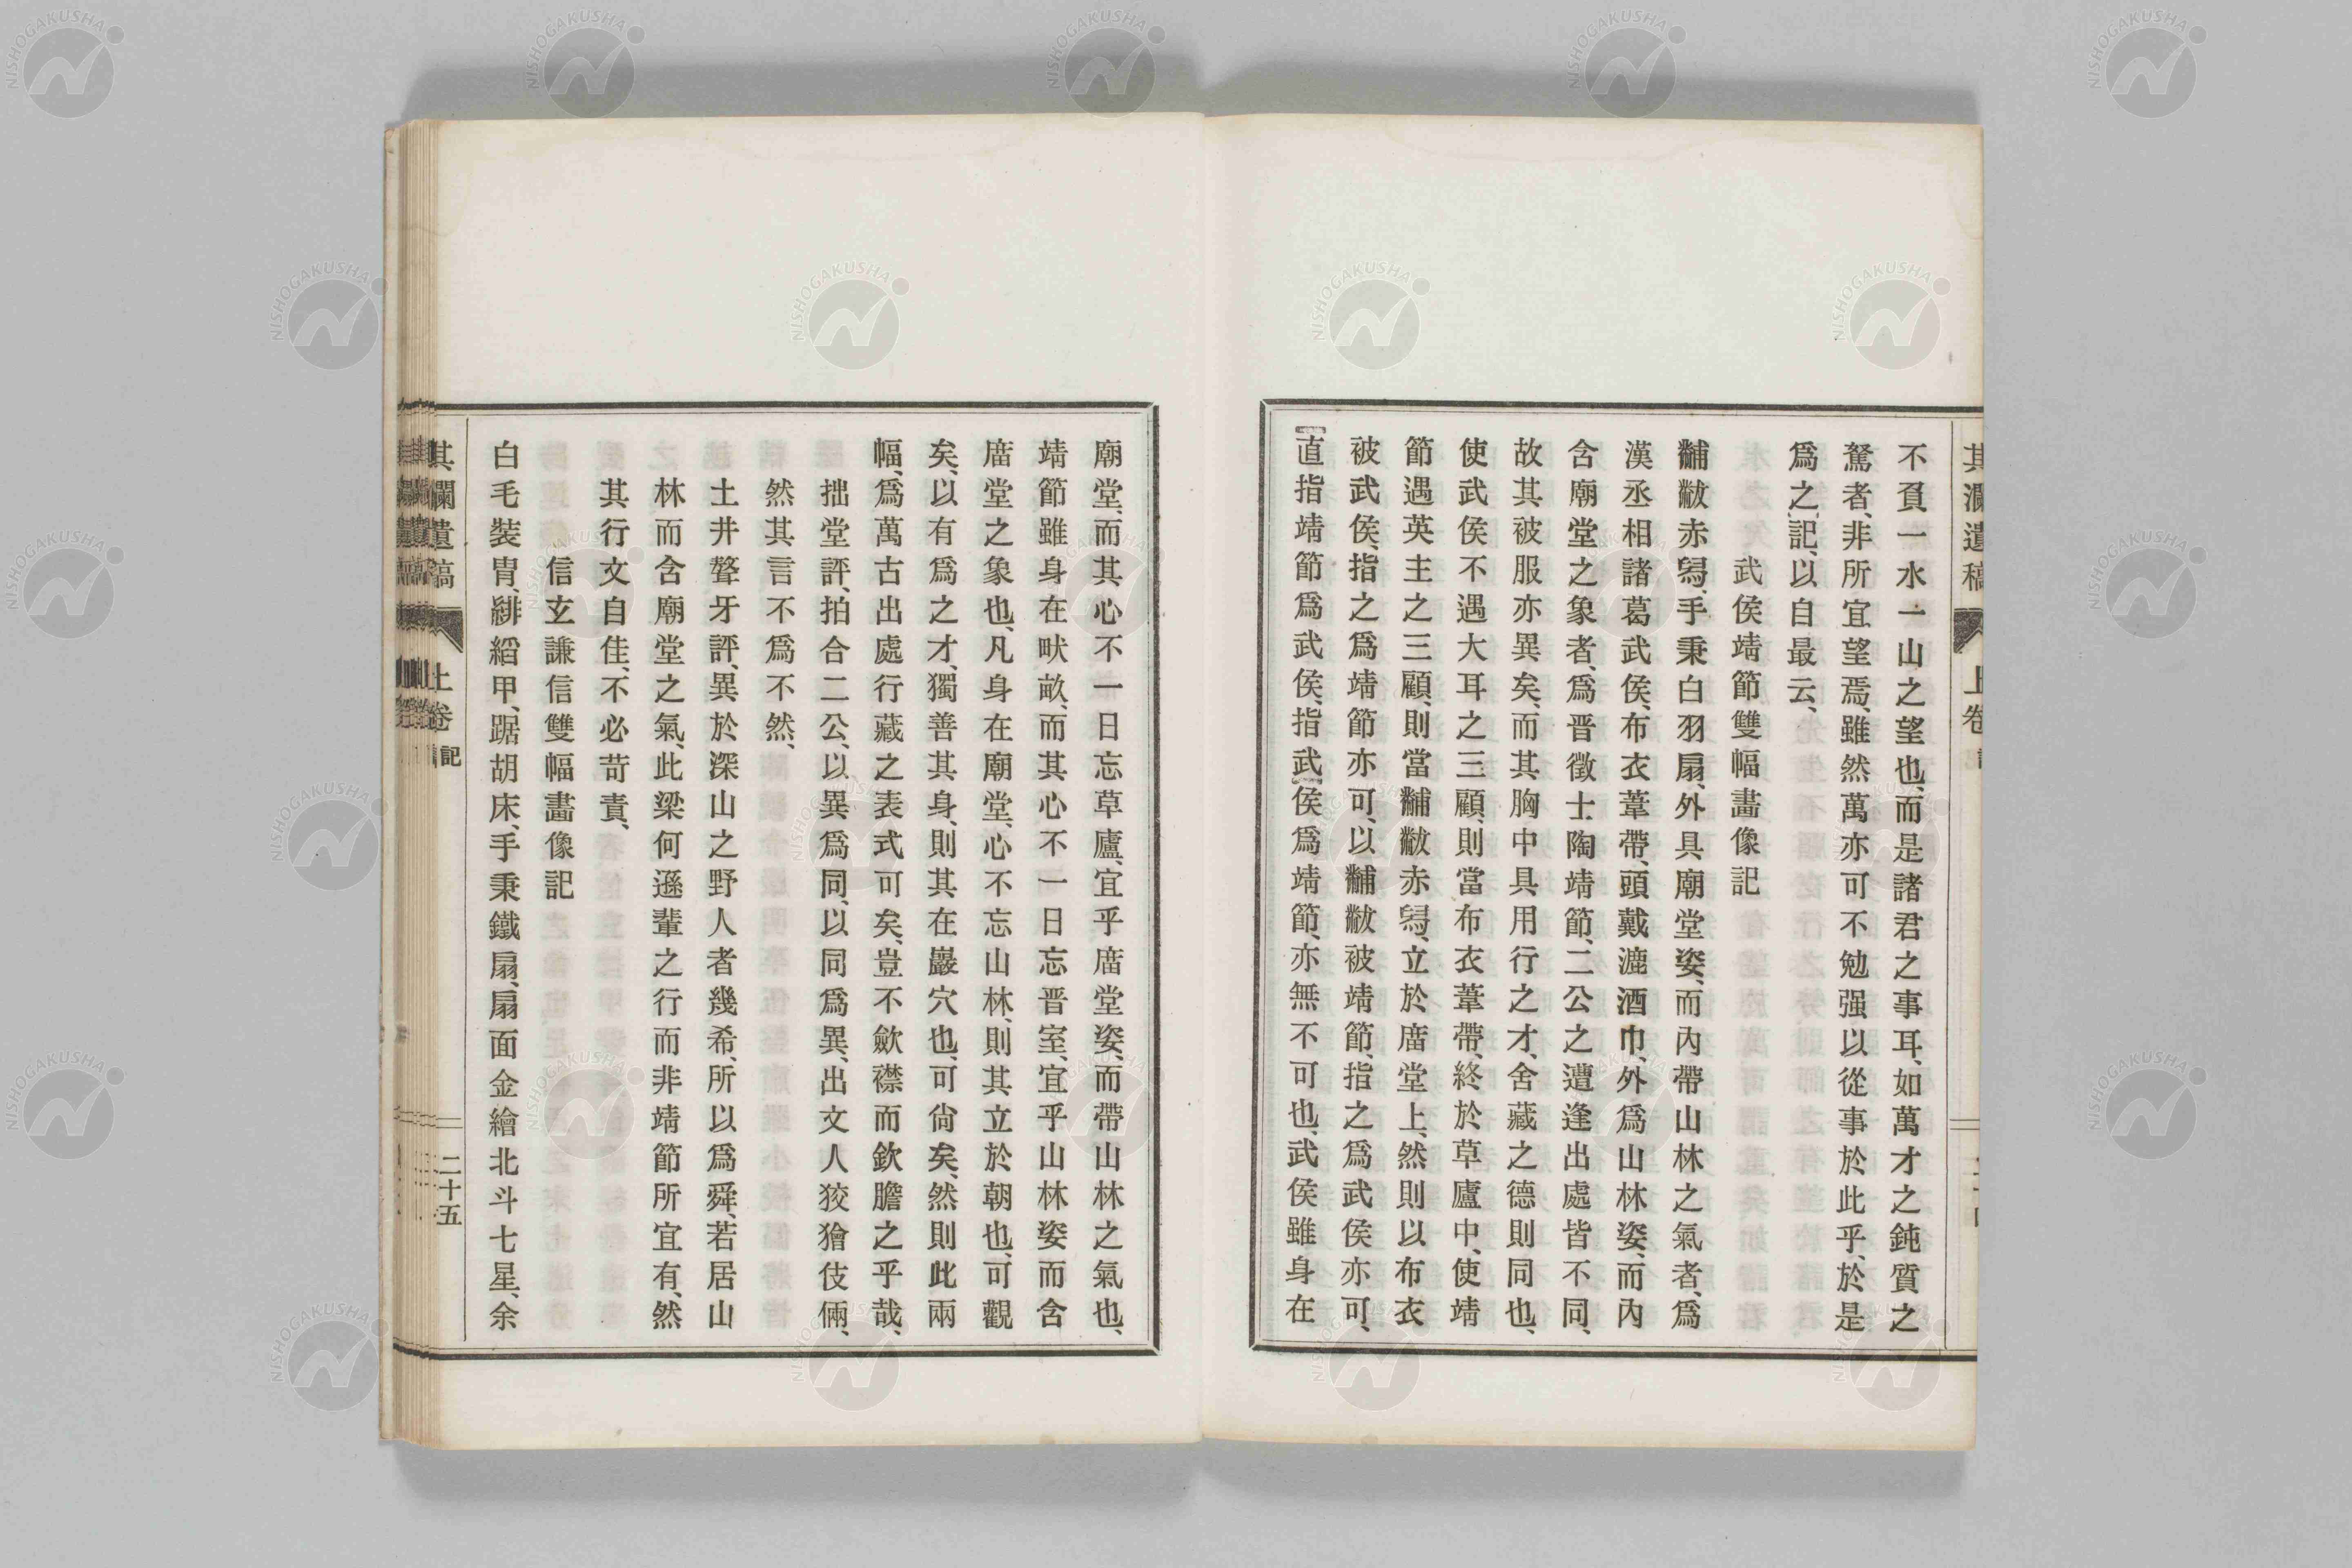 不負一水一山之望也、而是諸君之事耳、如萬才之鈍質之
駑者、非所宜望焉、雖然萬亦可不勉强以從事於此乎、於是
爲之記、以自最云、
武侯靖節雙幅畵像記
黼黻赤舃、手秉白羽扇、外具廟堂姿、而內帶山林之氣者、爲
漢丞相諸葛武侯、布衣葦帶、頭戴漉酒巾、外爲山林姿、而內
含廟堂之象者、爲晋徵士陶靖節、二公之遭逢出處皆不同、
故其被服亦異矣、而其胸中具用行之才、舍藏之德則同也、
使武侯不遇大耳之三顧、則當布衣葦帶、終於草廬中、使靖
節遇英主之三顧、則當黼黻赤舃、立於廣堂上、然則以布衣
被武侯、指之爲靖節亦可、以黼黻被靖節、指之爲武侯亦可、
直指靖節爲武侯、指武侯爲靖節、亦無不可也、武侯雖身在
廟堂、而其心不一日忘草廬、宜乎廣堂姿、而帶山林之氣也、
靖節雖身在畎畝、而其心不一日忘晋室、宜乎山林姿而含
廣堂之象也、凡身在廟堂、心不忘山林、則其立於朝也、可觀
矣、以有爲之才、獨善其身、則其在巖穴也、可尙矣、然則此兩
幅、爲萬古出處行藏之表式可矣、豈不歛襟而欽膽之乎哉、
拙堂評、拍合二公、以異爲同、以同爲異、出文人狡獪伎倆、
然其言不爲不然、
土井聱牙評、異於深山之野人者幾希、所以爲舜、若居山
林而含廟堂之氣、此梁何遜輩之行而非靖節所宜有、然
其行文自佳、不必苛責、
信玄謙信雙幅畵像記
白毛裝冑、緋縚甲、踞胡床、手秉鐵扇、扇面金繪北斗七星、余
其瀾遺稿 上卷 記 二十五
NISHOGAKUSHA